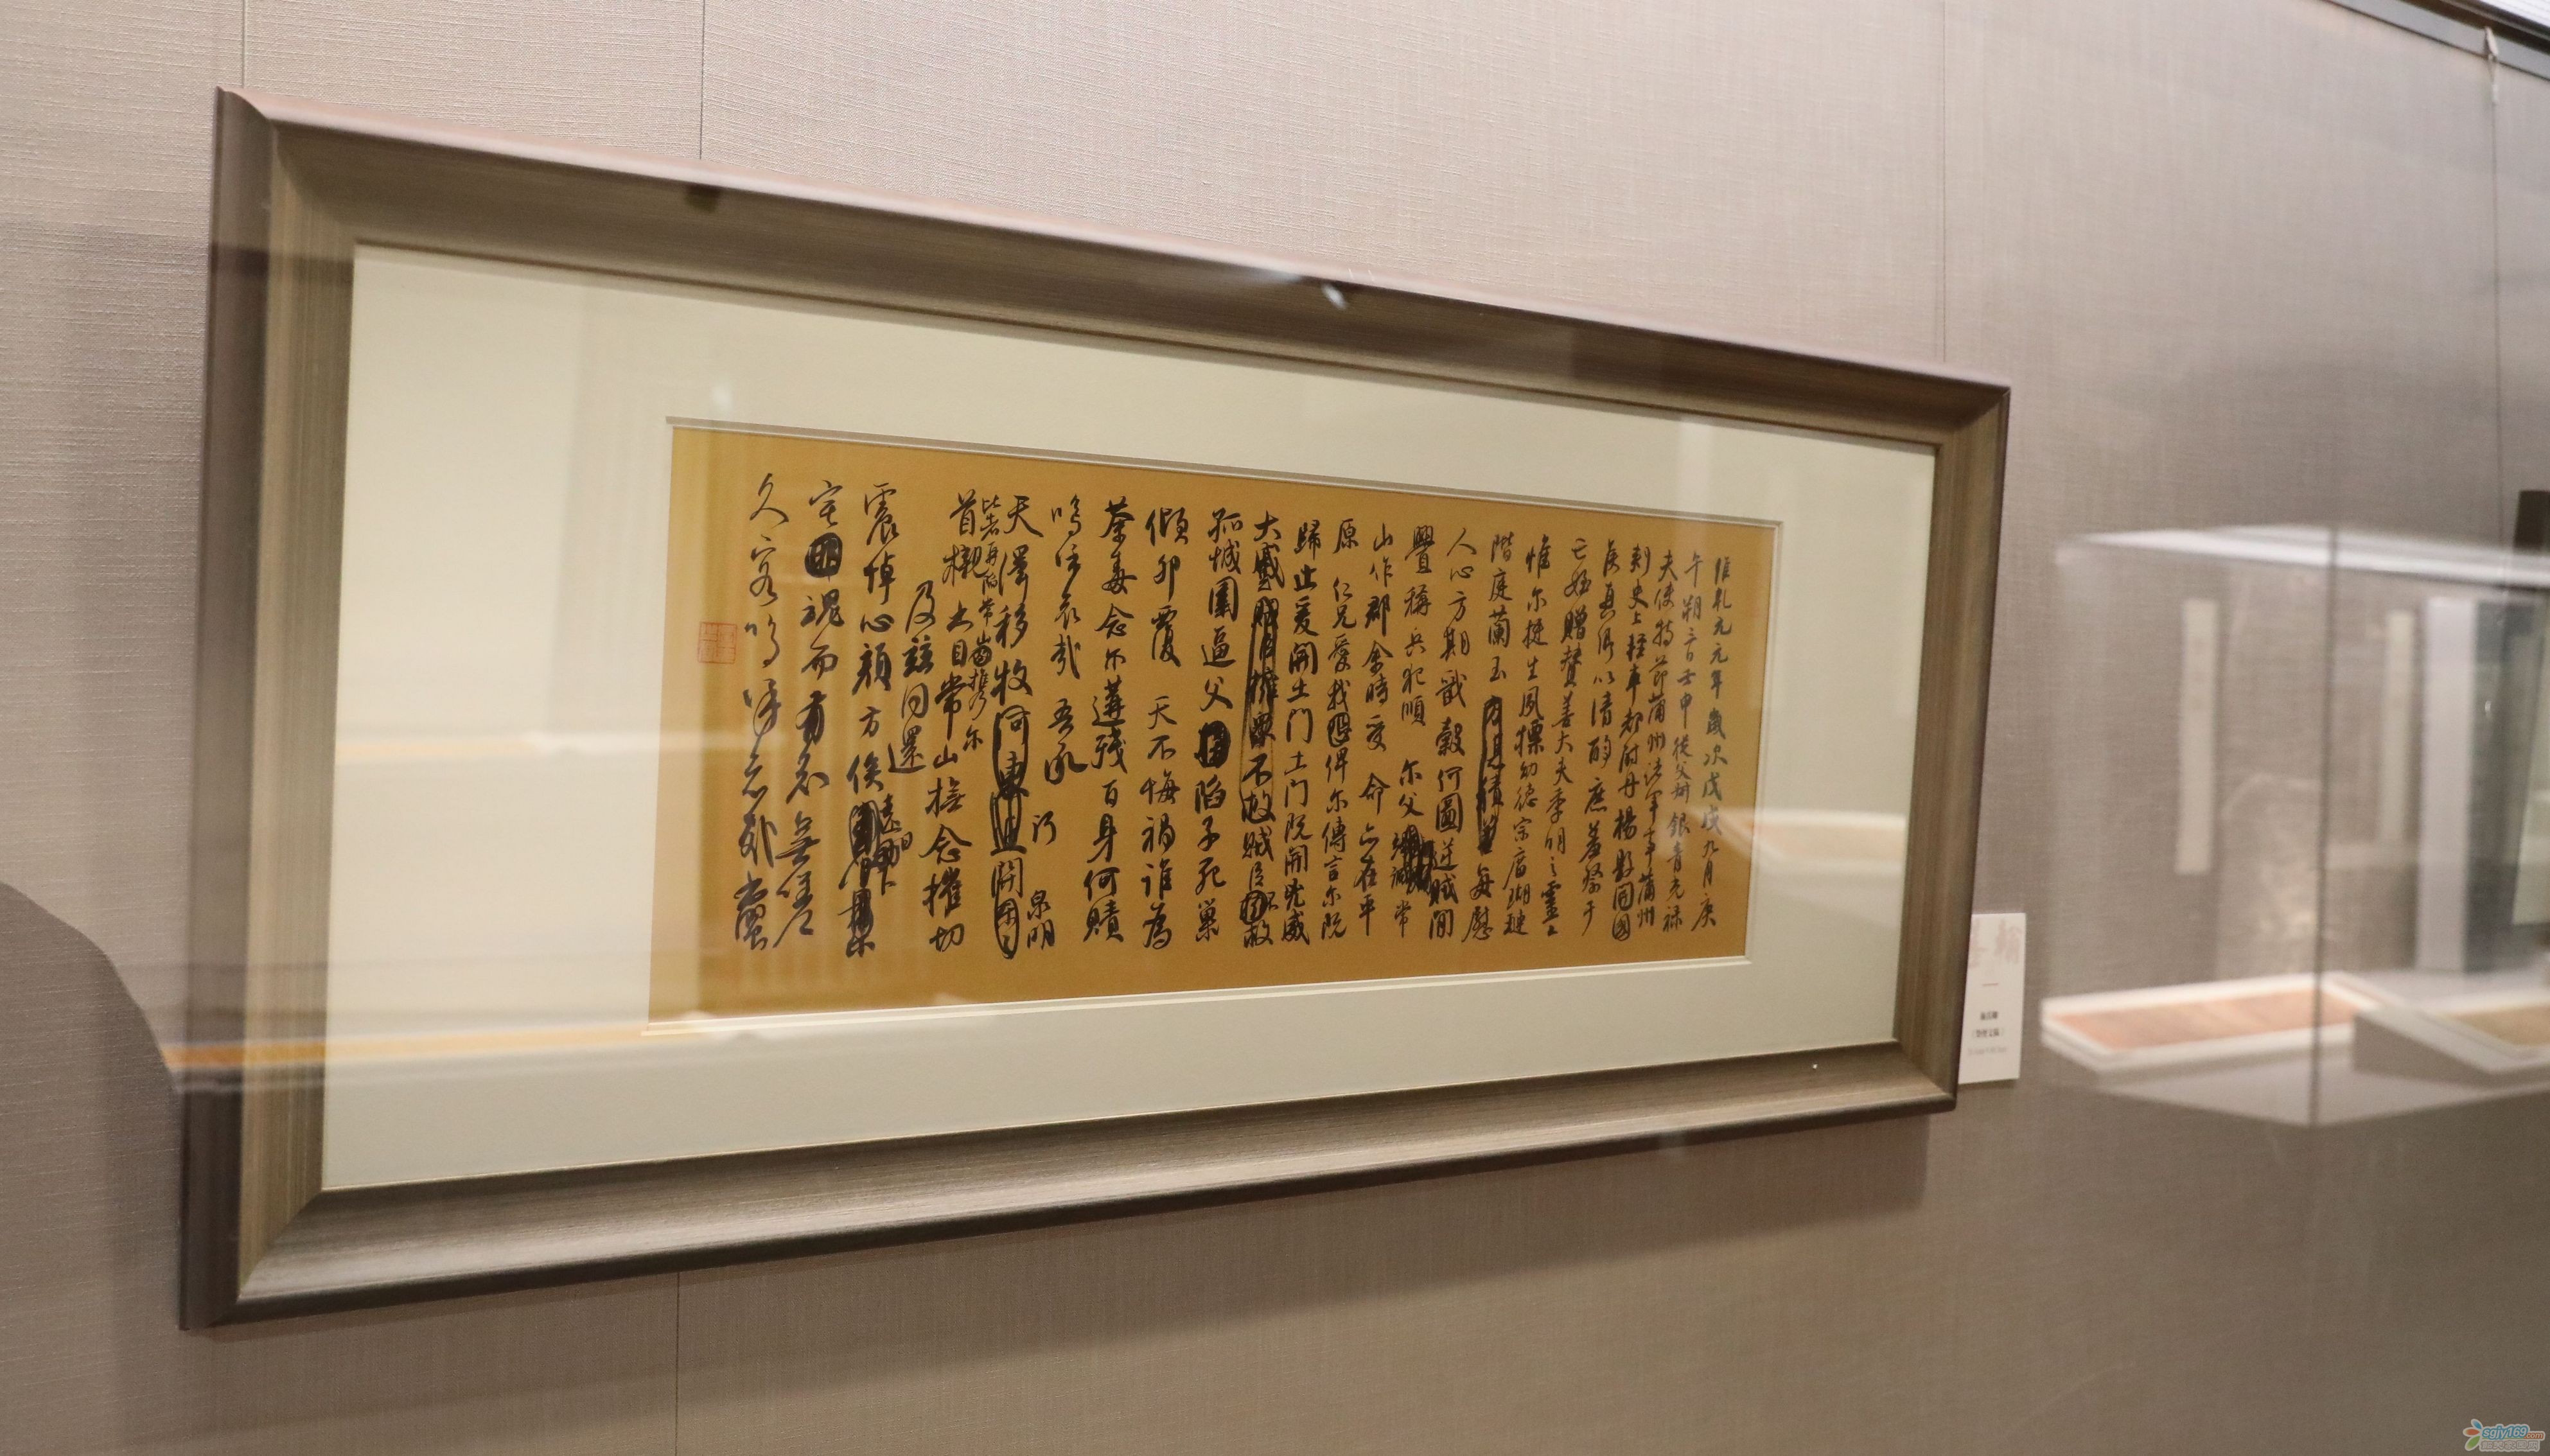 維乾元元年歲次戊戌九月庚
午朔三日壬申從父叔銀青光祿
夫使持節蒲州諸軍事蒲州
刺史上輕車都尉丹楊縣開國
侯真卿以清酌庶羞祭于
亡姪贈贊善大夫季明之靈曰
惟尔挺生夙標幼德宗廟瑚璉
階庭蘭玉每慰
人心方期戩穀何圖逆賊間
釁稱兵犯順尔父竭誠常
山作郡余時受命亦在平
原仁兄愛我俾尔傳言尔既
歸止爰開土門土門既開兇威
大蹙賊臣擁眾不救賊臣不救
孤城圍逼父陷子死巢
傾卵覆天不悔禍誰為
荼毒念尔遘殘百身何贖
嗚呼哀哉吾承行泉明
天澤移牧河東近河關
比者再陷常山攜尔
首櫬亦自常山撫念摧切
及茲同還
震悼心顏方俟遠日卜
宅魂而有知無嗟
久客嗚呼哀哉尚饗
sgjy169.com